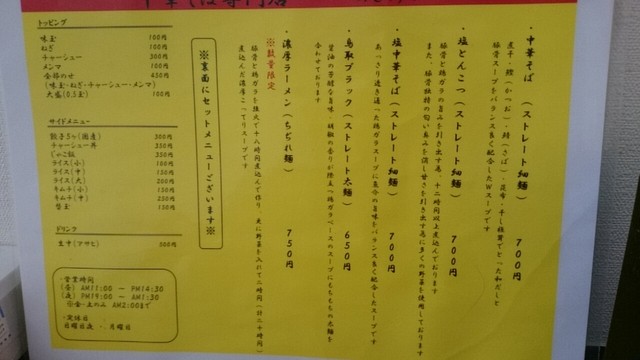 中華そば専門店
・中華そば(ストレート細麺) 700円
煮干・鰹(かつお)・鯖(さば)・昆布・干し椎茸でとった和だしと
豚骨スープをバランス良く配合したWスープです
・塩とんこつ(ストレート細麺) 700円
豚骨と鶏ガラの旨みを引き出す為、十二時間以上煮込んでおります
また、豚骨独特の匂いを消し甘さを引き出す為に多くの野菜を使用しております
・塩中華そば(ストレート細麺) 700円
あっさり透き通った鶏ガラスープに魚介の旨味をバランス良く配合したスープです
・鳥取ブラック(ストレート太麺) 650円
醤油の芳醇な旨味・胡椒の香りが際立つ鶏ガラベースのスープにもちもちの太麺を
合わせております
・濃厚ラーメン(ちぢれ麺) 750円
※数量限定
豚骨と鶏ガラを強火で十八時間煮込んで作り、更に野菜を入れて二時間(計二十時間)
煮込んだ濃厚こってりスープです
※裏面にセットメニューございます※
トッピング
味玉 100円
ねぎ 100円
チャーシュー 300円
メンマ 100円
全部のせ 450円
(味玉・ねぎ・チャーシュー・メンマ)
大盛(0.5玉) 100円
サイドメニュー
餃子5ヶ(国産) 300円
チャーシュー丼 350円
じゃこ飯 350円
ライス(小) 100円
ライス(中) 150円
ライス(大) 200円
キムチ(小) 150円
キムチ(中) 250円
替玉 150円
ドリンク
生中(アサヒ) 500円
・営業時間
(昼) AM11:00 ~ PM14:30
(夜) PM19:00 ~ AM1:30
※金・土のみ AM2:00まで
・定休日
日曜日夜 ・ 月曜日